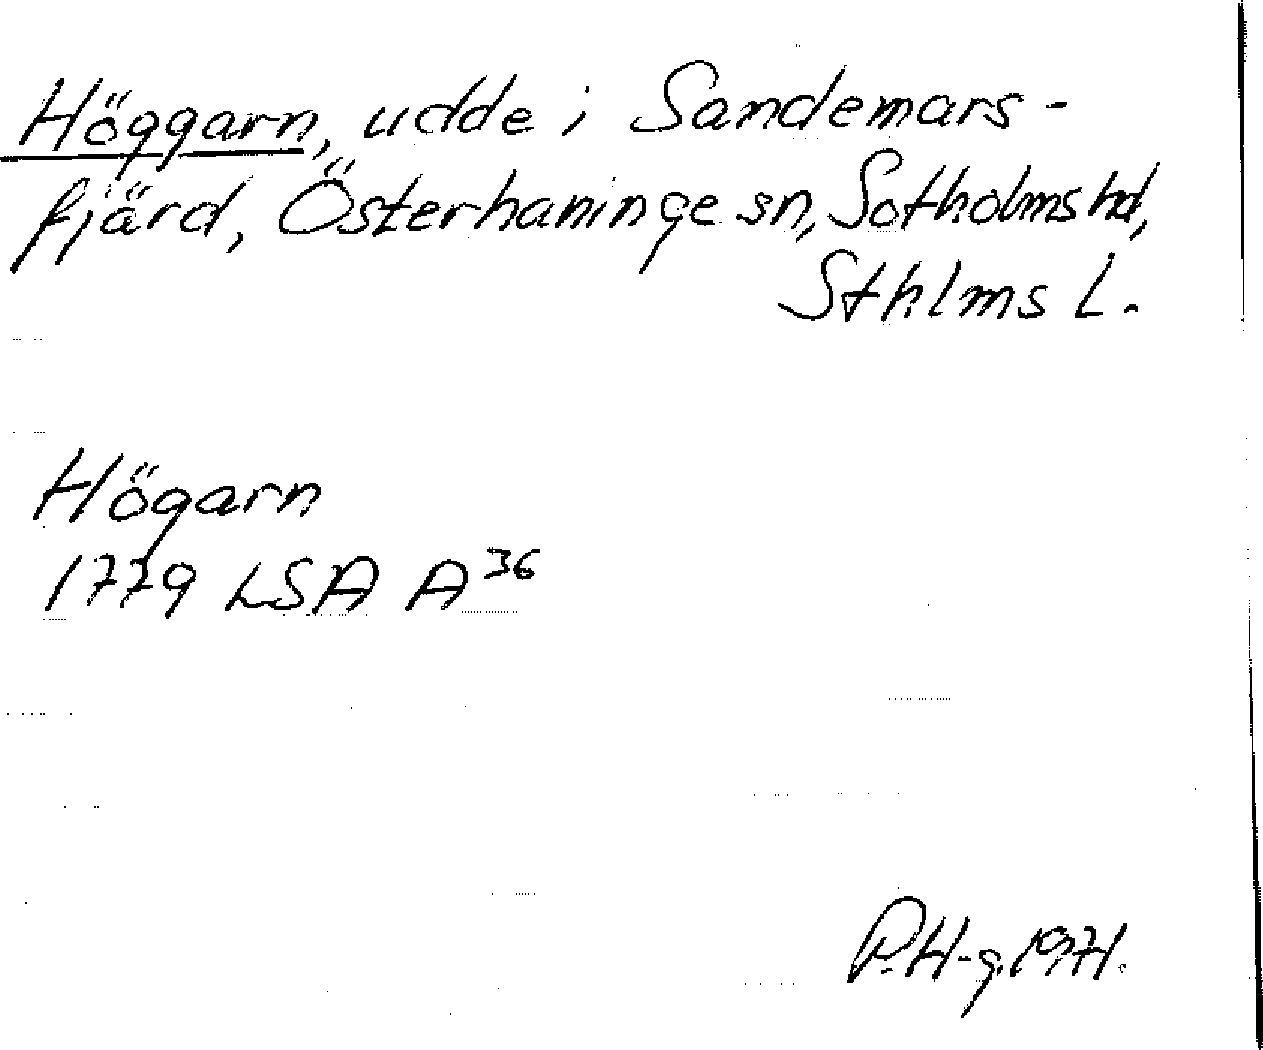 Höggarn, udde i Sandemars-
fjärd, Österhaninge sn, Sotholms hd,
Sthlms l.
Högarn
1779 LSA A 36
P. H-g. 1971.